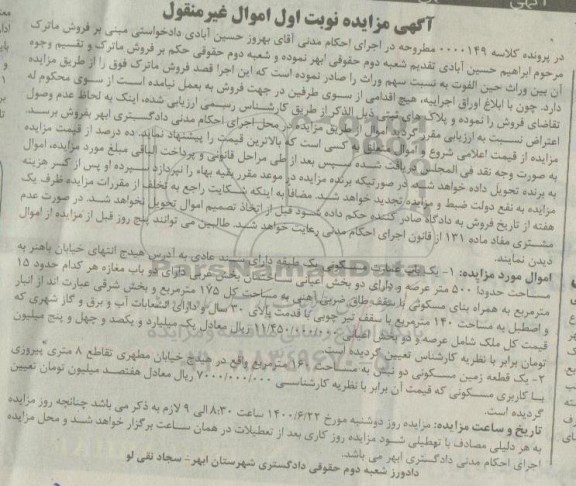 آگهی مزایده نوبت اول اموال غیرمنقول
در پرونده کلاسه ۰۰۰۰۱۴۹ مطروحه در اجرای احکام مدنی آقای بهروز حسین آبادی دادخواستی مبنی بر فروش ماترک
مرحوم ابراهیم حسین آبادی تقدیم شعبه دوم حقوقی ابهر نموده و شعبه دوم حقوقی حکم بر فروش ماترک و تقسیم وجوه
آن بین وراث حین الفوت به نسبت سهم وراث را صادر نموده است که این اجرا قصد فروش ماترک فوق را از طریق مزایده
دارد. چون با ابلاغ اوراق اجراییه، هیچ اقدامی از سوی طرفین در جهت فروش به عمل نیامده است از سوی محکوم له
تقاضای فروش را نموده و پلاک های ثبتی ذیل الذکر از طریق کارشناس رسمی ارزیابی شده، اینک به لحاظ عدم وصول
اعتراض نسبت به ارزیابی مقرر گردید اموال از طریق مزایده در محل اجرای احکام مدنی دادگستری ابهر بفروش برسد.
مزایده از قیمت اعلامی شروع و اموال متعلق به کسی است که بالاترین قیمت را پیشنهاد نماید. ده درصد از قیمت مزایده
به صورت وجه نقد فی المجلس دریافت شده سپس بعد از طی مراحل قانونی و پرداخت الباقی مبلغ مورد مزایده، اموال
به برنده تحویل داده خواهد شد. در صورتیکه برنده مزایده در موعد مقرر بقیه بهاء را نپردازد سپرده او پس از کسر هزینه
مزایده به نفع دولت ضبط و مزایده تجدید خواهد شد. مضافاً به اینکه شکایت راجع به تخلف از مقررات مزایده ظرف یک
هفته از تاریخ فروش به دادگاه صادر کننده حکم داده شود قبل از اتخاذ تصمیم اموال تحویل نخواهد شد. در صورت عدم
مشتری مفاد ماده ۱۳۱ از قانون اجرای احکام مدنی رعایت خواهد شد. طالبین می توانند پنج روز قبل از مزایده از اموال
دیدن نمایند.
اموال مورد مزایده: ۱- یک باب عمارت مسکونی یک طبقه دارای سند عادی به آدرس هیدج انتهای خیابان باهنر به
مساحت حدودا ۵۰۰ متر عرصه و دارای دو بخش اعیانی ساختمان بخش غربی دارای دو باب مغازه هر کدام حدود ۱۵
مترمربع به همراه بنای مسکونی با سقف طاق ضربی آهنی به مساحت کل ۱۷۵ مترمربع و بخش شرقی عبارت اند از انبار
و اصطبل به مساحت ۱۴۰ مترمربع با سقف تیر چوبی با قدمت بالای ۳۰ سال و دارای انشعابات آب و برق و گاز شهری که
قیمت کل ملک شامل عرصه و دو بخش اعیانی ۱۱/۴۵۰/۰۰۰/۰۰۰ ریال معادل یک میلیارد و یکصد و چهل و پنج میلیون
تومان برابر با نظریه کارشناس تعیین گردیده است.
۲- یک قطعه زمین مسکونی دو نبش به مساحت ۱۶۰ مترمربع واقع در هیدج خیابان مطهری تقاطع ۸ متری پیروزی
با کاربری مسکونی که قیمت آن برابر با نظریه کارشناسی ۷/۰۰۰/۰۰۰/۰۰۰ ریال معادل هفتصد میلیون تومان تعیین
گردیده است.
تاریخ و ساعت مزایده: مزایده روز دوشنبه مورخ ۱۴۰۰/۶/۲۲ ساعت ۸:۳۰ الی ۹ لازم به ذکر می باشد چنانچه روز مزایده
به هر دلیلی مصادف با تعطیلی شود مزایده روز کاری بعد از تعطیلات در همان ساعت برگزار خواهد شد و محل مزایده
اجرای احکام مدنی دادگستری ابهر می باشد.
دادورز شعبه دوم حقوقی دادگستری شهرستان ابهر- سجاد تقی لو